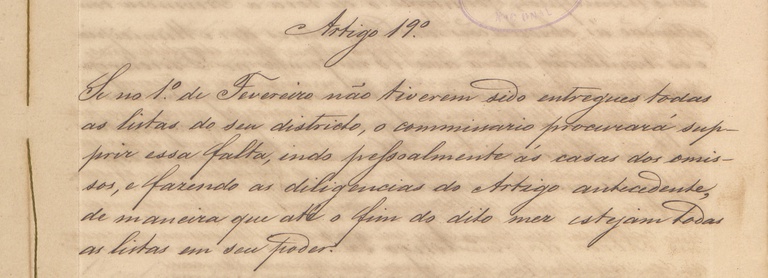 Artigo 19.º
Se no 1.º de Fevereiro não tiverem sido entregues todas
as listas do seu districto, o commissario procurará sup-
prir essa falta, indo pessoalmente ás casas dos omis-
sos, e fazendo as diligencias do Artigo antecedente,
de maneira que até o fim do dito mez estejam todas
as listas em seu poder.